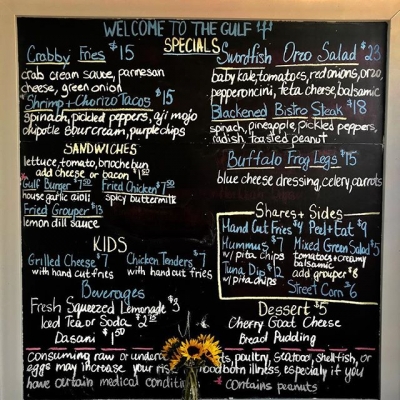 WELCOME TO THE GULF
SPECIALS
Crabby Fries $15
crab cream sauce, parmesan
cheese, green onion
*Shrimp + Chorizo Tacos $15
spinach, pickled peppers, aji mojo
chipotle sour cream, purple chips
Swordfish Orzo Salad $23
baby kale, tomatoes, red onions, orzo,
pepperoncini, feta cheese, balsamic
Blackened Bistro Steak $18
spinach, pineapple, pickled peppers,
radish, toasted peanut
Buffalo Frog Legs $15
blue cheese dressing, celery, carrots
SANDWICHES
lettuce, tomato, brioche bun
add cheese or bacon $1
Gulf Burger $7.50
house garlic aioli
Fried Chicken $7.50
spicy buttermilk
Fried Grouper $13
lemon dill sauce
KIDS
Grilled Cheese $7
with hand cut fries
Chicken Tenders $7
with hand cut fries
Shares + Sides
Hand Cut Fries $4 Peel + Eat $9
Hummus $7
w/ pita chips
Tuna Dip $12
w/ pita chips
Mixed Green Salad $5
tomatoes + creamy
balsamic
add grouper $8
Street Corn $6
Beverages
Fresh Squeezed Lemonade $3
Iced Tea or Soda $2
Dasani $1.50
Dessert $5
Cherry Goat Cheese
Bread Pudding
Consuming raw or under poultry, seafood, shellfish, or
eggs may increase your ris illness, especially if you
have certain medical conditi
* Contains peanuts